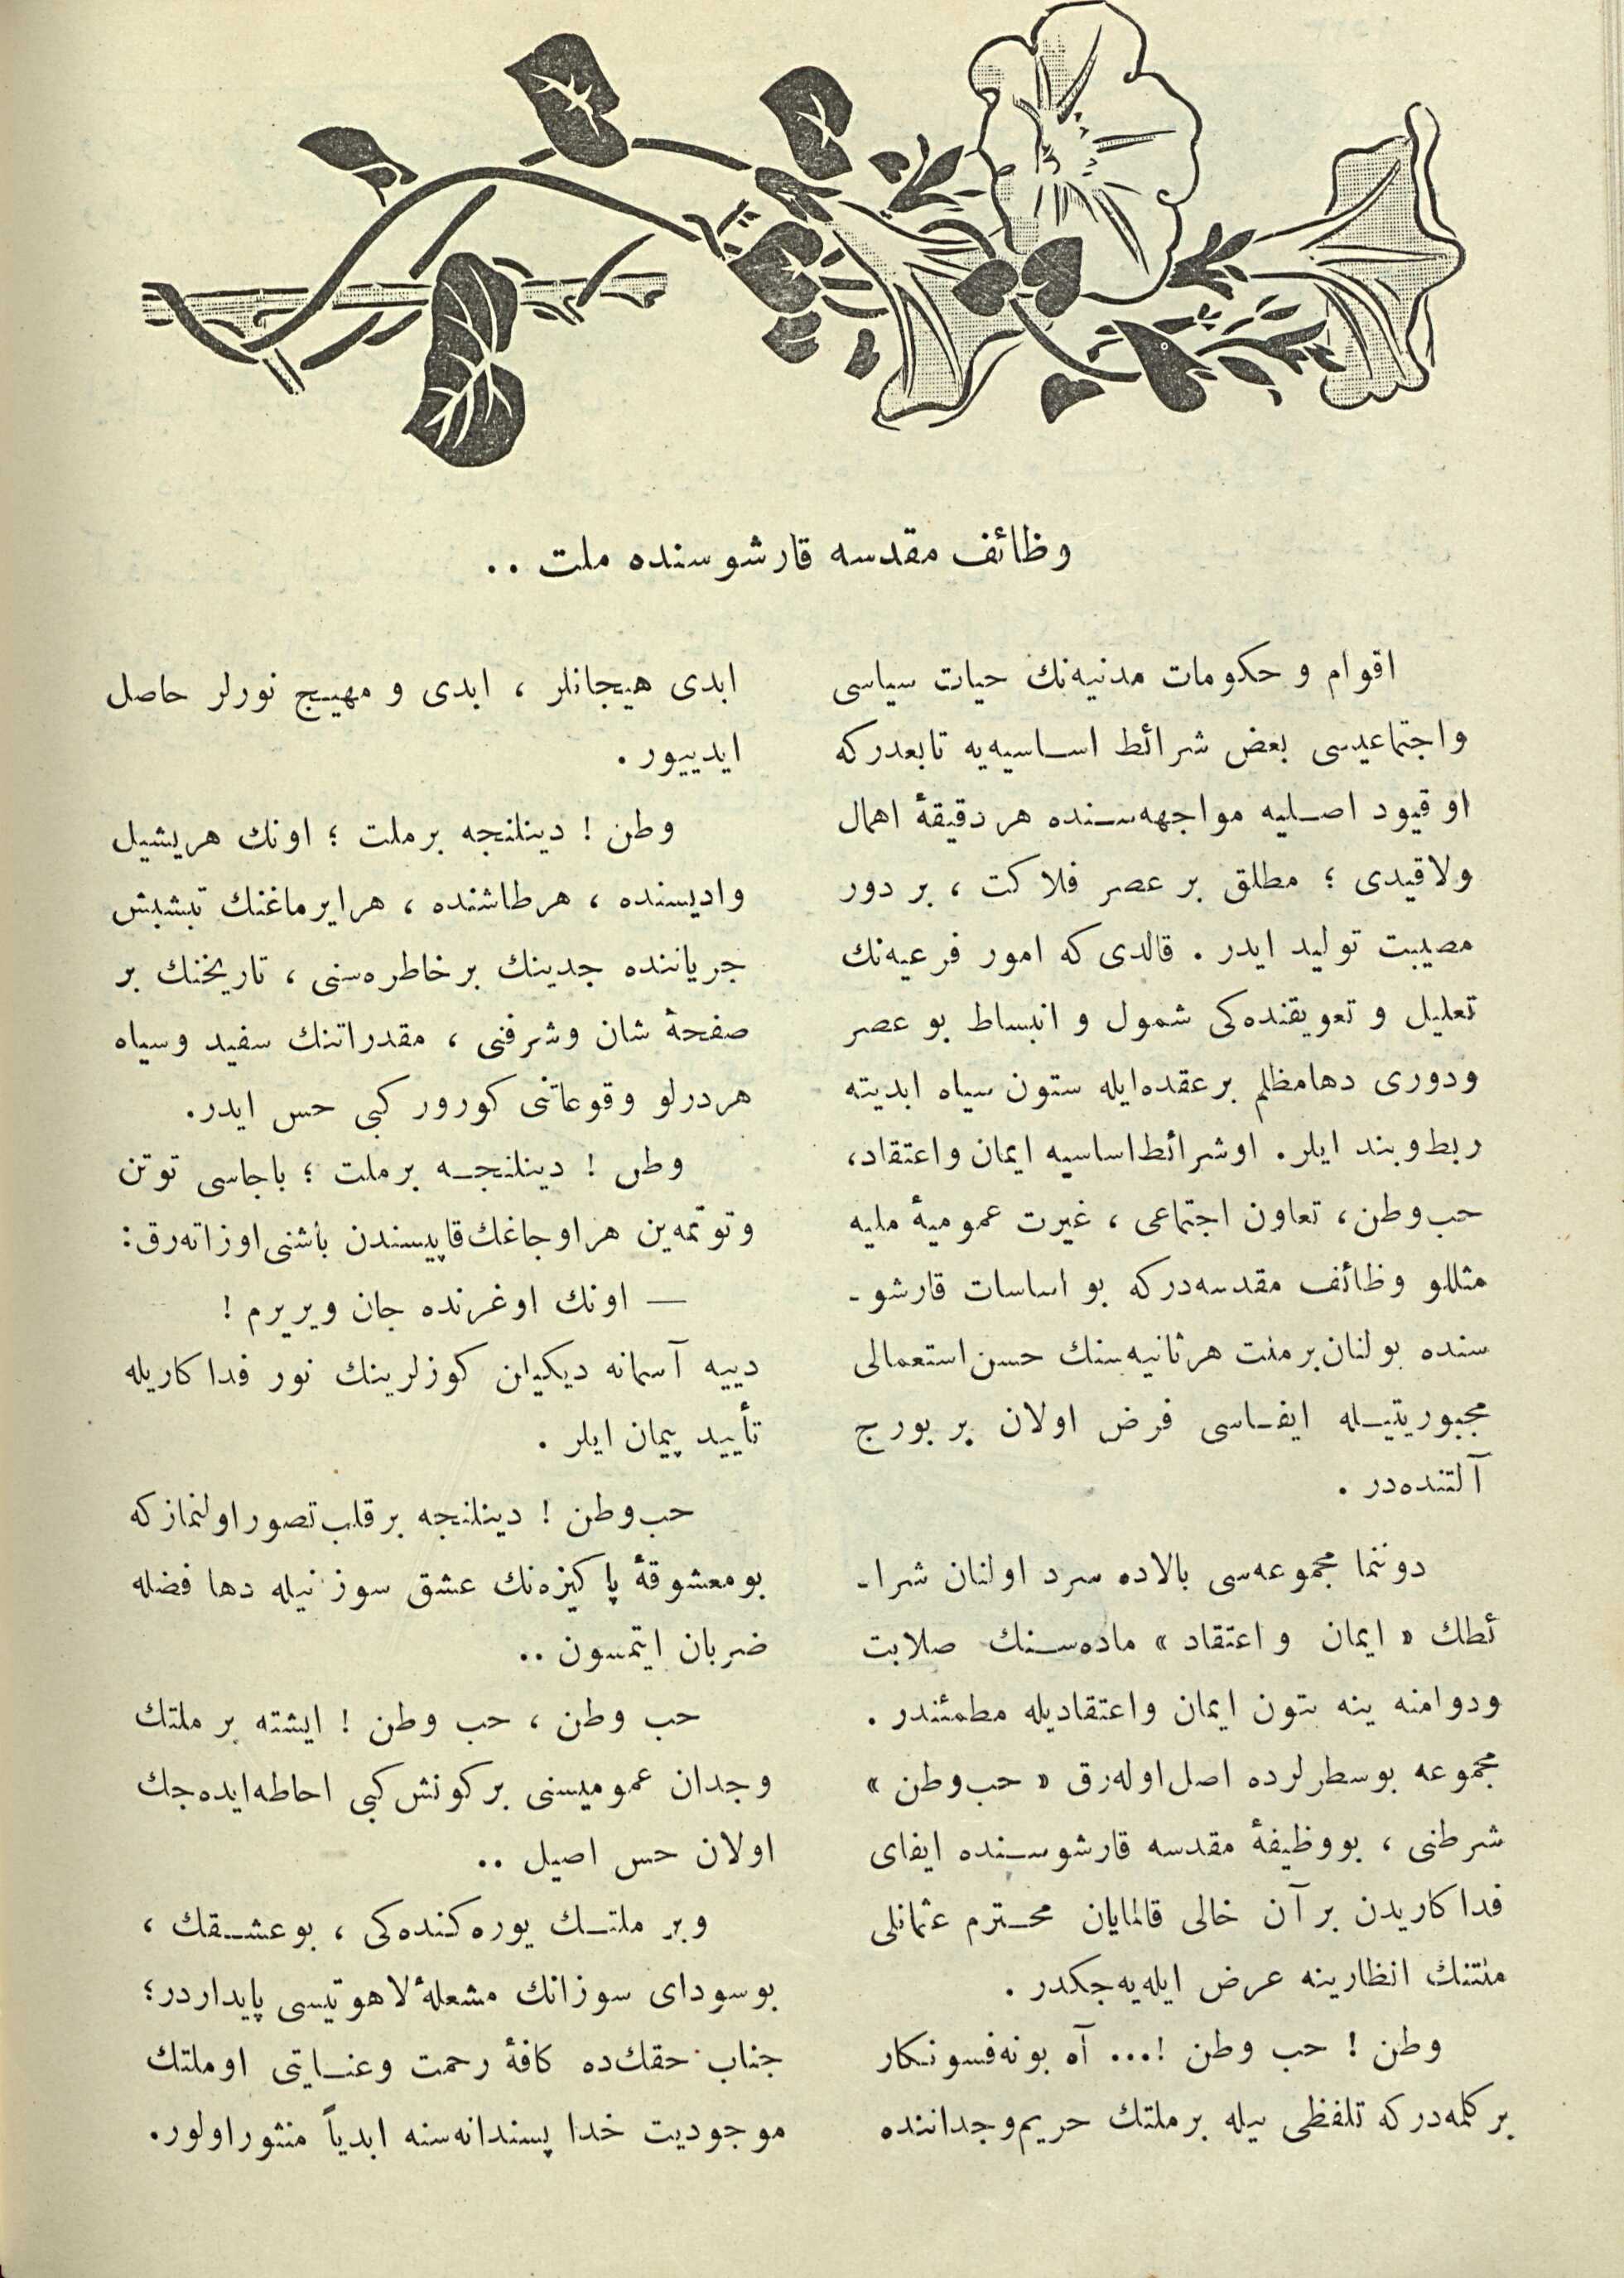 وظائف مقدسه قارشوسنده ملت ..
اقوام و حكومات مدنيه‌نك حيات سياسى
واجتماعيسى بعض شرائط اساسيه‌يه تابعدركه
او قيود اصليه مواجهه‌سنده هر دقيقهٔ اهمال
ولاقيدى ؛ مطلق بر عصر فلاكت ، بر دور
مصيبت توليد ايدر . قالدى كه امور فرعيه‌نك
تعليل و تعويقنده‌كى شمول و انبساط بو عصر
ودورى دهامظلم برعقده‌ايله ستون سياه ابديته
ربط‌وبند ايلر. اوشرائط‌اساسيه ايمان واعتقاد،
حب‌وطن، تعاون اجتماعى ، غيرت عموميهٔ مليه
مثللو وظائف مقدسه‌دركه بو اساسات قارشو-
سنده بولنان‌برملت هرثانيه‌سنك حسن‌استعمالى
مجبوريتيله ايفاسى فرض اولان بر بورج
آلتنده‌در .
دوننما مجموعه‌سى بالاده سرد اولنان شرا-
ئطك « ايمان و اعتقاد » ماده‌سنك صلابت
ودوامنه ينه بتون ايمان واعتقاديله مطمئندر .
مجموعه بوسطرلرده اصل‌اوله‌رق « حب‌وطن »
شرطنى ، بووظيفهٔ مقدسه قارشوسنده ايفاى
فداكاريدن بر آن خالى قالمايان محترم عثمانلى
ملتنك انظارينه عرض ايله‌يه‌جكدر .
وطن ! حب وطن !... آه بونه‌فسونكار
بركلمه‌دركه تلفظى بيله برملتك حريم‌وجداننده
ابدى هيجانلر ، ابدى و مهيج نورلر حاصل
ايدييور .
وطن ! دينلنجه برملت ؛ اونك هريشيل
واديسنده ، هرطاشنده ، هرايرماغنك تبشبش
جرياننده جدينك برخاطره‌سنى ، تاريخنك بر
صفحهٔ شان وشرفنى ، مقدراتنك سفيد وسياه
هردرلو وقوعاتنى كورور كبى حس ايدر.
وطن ! دينلنجه برملت ؛ باجاسى توتن
وتوتمه‌ين هراوجاغك‌قاپيسندن باشنى‌اوزاته‌رق:
— اونك اوغرنده جان ويريرم !
دييه آسمانه ديكيلن كوزلرينك نور فداكاريله
تأييد پيمان ايلر .
حب‌وطن ! دينلنجه برقلب‌تصوراولنمازكه
بومعشوقهٔ پاكيزه‌نك عشق سوزنيله دها فضله
ضربان ايتمسون ..
حب وطن ، حب وطن ! ايشته بر ملتك
وجدان عموميسنى بركونش‌كبى احاطه‌ايده‌جك
اولان حس اصيل ..
وبر ملتك يوره‌كنده‌كى ، بوعشقك ،
بوسوداى سوزانك مشعلهٔ لاهوتيسى پايداردر؛
جناب حقك‌ده كافهٔ رحمت وعنايتى اوملتك
موجوديت خدا پسندانه‌سنه ابدياً منثوراولور.